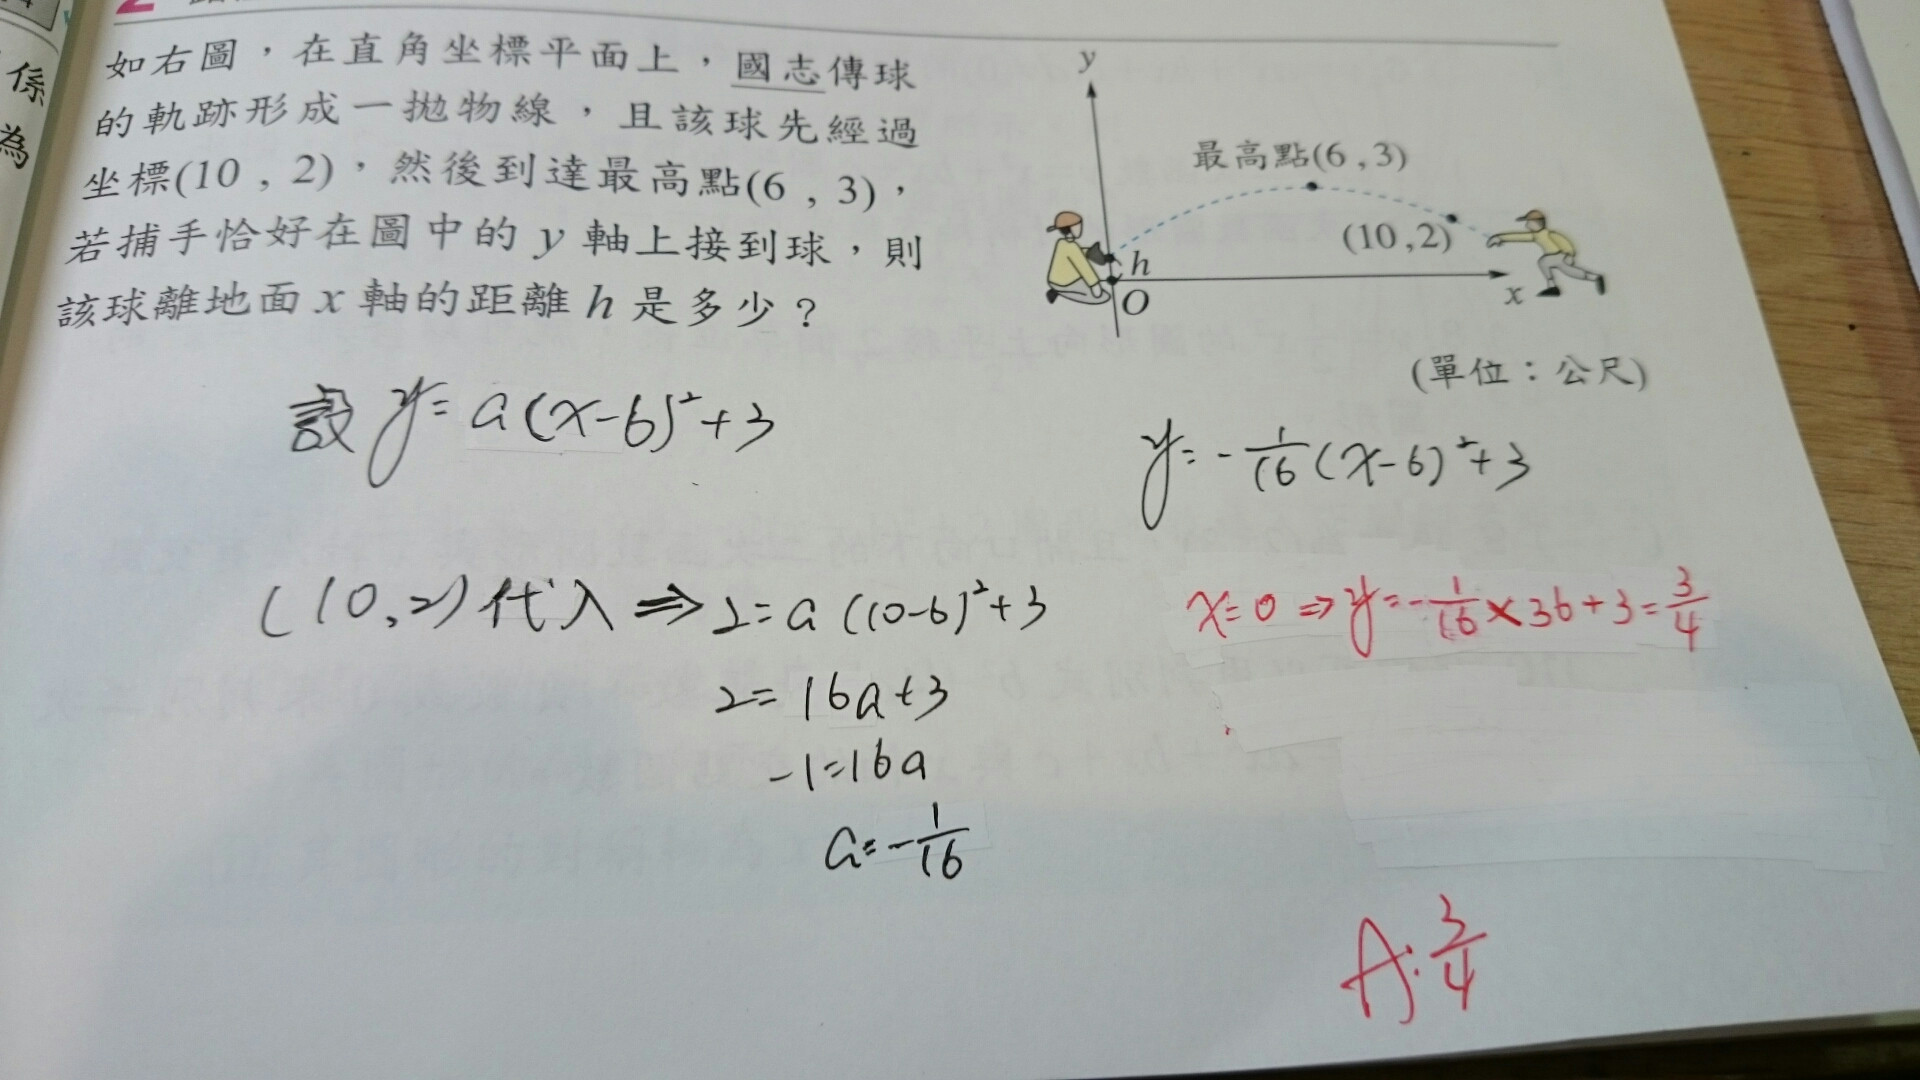 係
為
如右圖，在直角坐標平面上，國志傳球
的軌跡形成一拋物線，且該球先經過
坐標(10，2)，然後到達最高點(6，3)，
若捕手恰好在圖中的 y 軸上接到球，則
該球離地面 x 軸的距離 h 是多少？
y
最高點(6,3)
(10,2)
h
O
x
(單位：公尺)
設 y=a(x-6)²+3
(10,2)代入⇒2=a(10-6)²+3
2=16a+3
-1=16a
a=-1/16
y=-1/16(x-6)²+3
x=0⇒y=-1/16×36+3=3/4
A:3/4